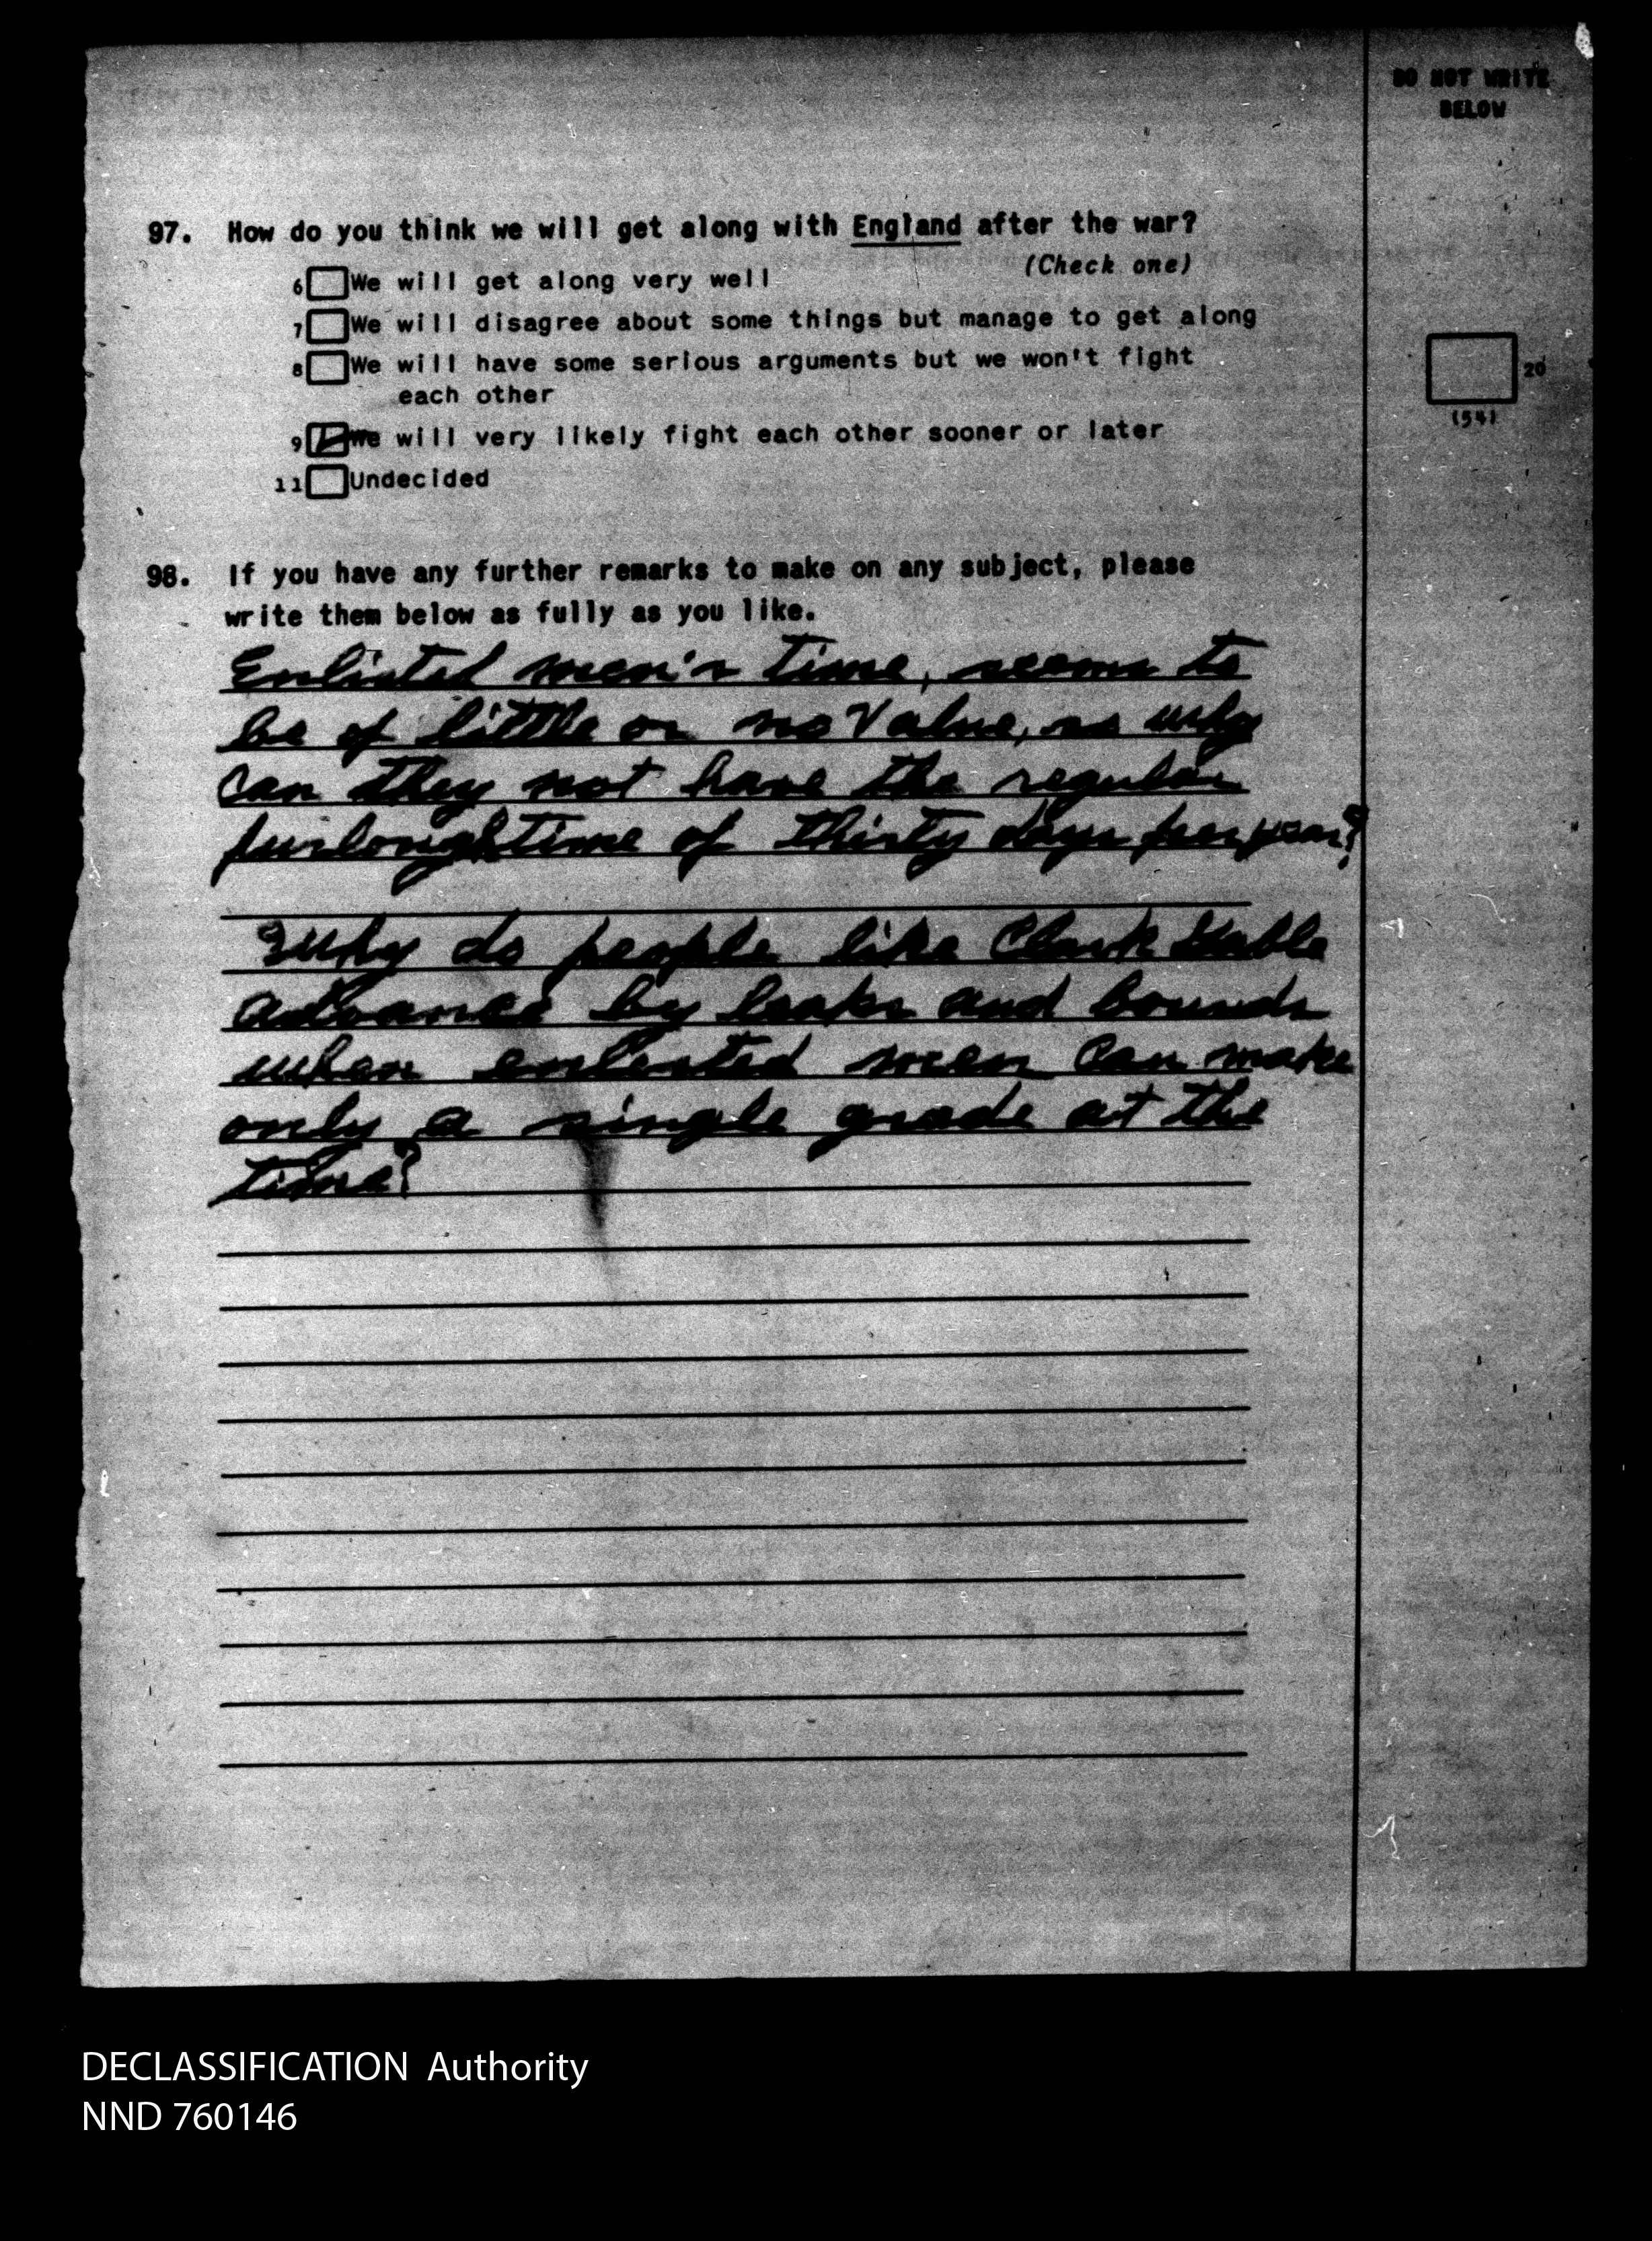 DO NOT WRITE
BELOW
97. How do you think we will get along with England after the war?
(Check one)
6 We will get along very well
7 We will disagree about some things but manage to get along
8 We will have some serious arguments but we won't fight
each other
9 We will very likely fight each other sooner or later
11 Undecided
20
(54)
98. If you have any further remarks to make on any subject, please
write them below as fully as you like.
Enlisted men's time, seems to
be of little or no Value, so why
can they not have the regular
furlough time of thirty days per year?
Why do people like Clark Gable
advance by leaps and bounds
when enlisted men can make
only a single grade at the
time?
DECLASSIFICATION Authority
NND 760146